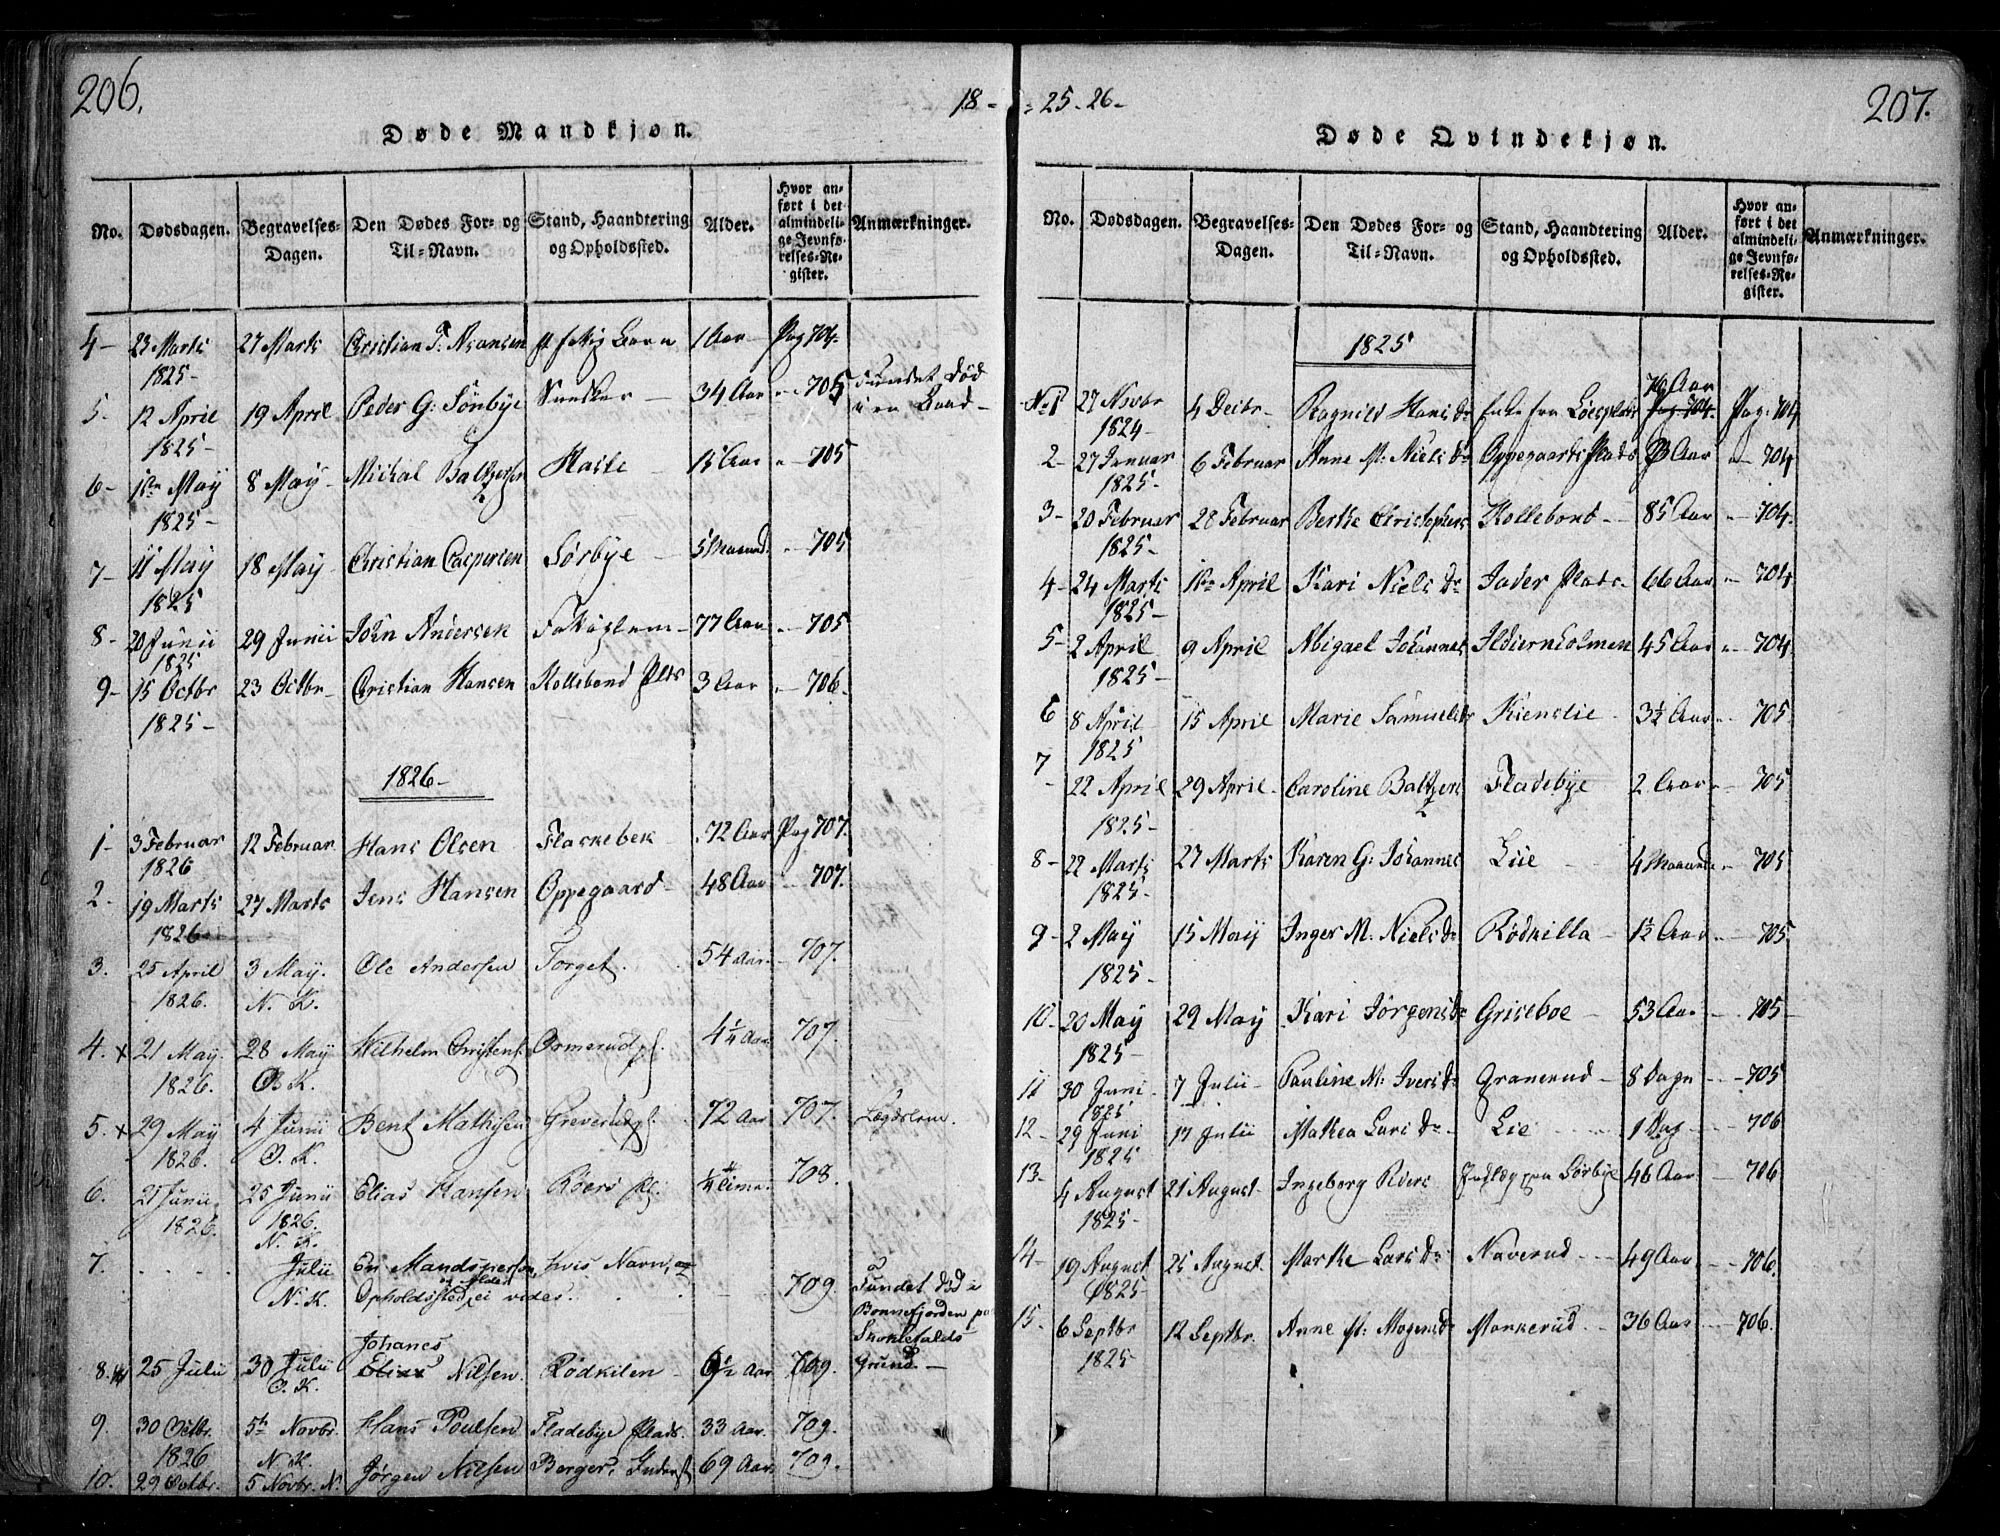 206.
18-
Døde Mandkjøn.
No. Dødsdagen. Begravelses-Dagen. Den Dødes For- og Til-Navn. Stand, Haandtering og Opholdssted. Alder. Hvor anført i det almindelige Jevnførelses-Register. Anmærkninger.
4- 23 Marts 27 Marts Christian T. 1 Aar Pag 704.
1825-
5. 12 April 19 April Peder G: Sønbye 34 Aar " 705 Fundet død
1825-
6- 1ste May 8 May- Michal Baltzersen 15 Aar " 705
1825-
7- 11 May 18 May Christian Caspersen Sørbye 5 Maaned. " 705
1825
8- 20 Junii 29 Junii John Andersen 77 Aar " 705
1825
9- 15 Octbr 23 Octbr Christian Hansen Kollebond Plds 3 Aar " 706.
1825-
1826-
1- 3 Februar 12 Februar Hans Olsen Flaskebek 72 Aar Pag 707.
1826
2- 19 Marts 27 Marts Jens Hansen Oppegaard- 48 Aar " 707.
1826
3. 25 April 3 May. Ole Andersen Torget. 54 Aar. 707.
1826. N. K.
4. x 21 May. 28 May Wilhelm Christens. Ormerud pl. 4¼ Aar 707.
1826. O. K.
5. x 29 May 4 Junii Bent Mathisen Greverud pl. 72 Aar 707. Lægdslem.
1826. O. K.
6. 21 Junii 25 Junii Elias Hansen Røers pl. ¼ Time. 708.
1826. 1826.
N. K.
7. Julii En Mandsperson, hvis Navn, og
og Alder
N. K. Opholdssted, ei vides. 709. Fundet død i
Bonnefjorden paa
Skoklefalds
Grund.-
Johanes
8. 25 Julii 30 Julii Elias Nilsen. Rødkilen 6½ Aar 709.
O. K.
9. 30 Octbr. 5te Novbr. Hans Poulsen Fladebye Plads. 33 Aar. 709.
1826 N. K.
10. 29 Octbr. 5 Novbr. N. Jørgen Nilsen Berger, Inderst 69 Aar 709.
25-26-
207.
Døde Qvindekjøn.
No. Dødsdagen. Begravelses-Dagen. Den Dødes For- og Til-Navn. Stand, Haandtering og Opholdssted. Alder. Hvor anført i det almindelige Jevnførelses-Register. Anmærkninger.
1825
No 1 27 Novbr 4 Decbr- Ragnild Hans Dr Enke fra 70 Aar Pag: 704
1824-
2- 27 Januar 6 Februar Anne M: Niels Dr Oppegaards Plads Aar " 704
1825-
3- 20 Februar 28 Februar Berthe Christophers Kollebond- 85 Aar " 704.
1825-
4- 24 Marts 1ste April Kari Niels Dr Jader Plads- 66 Aar " 704
1825-
5- 2 April 9 April Abigael Johannes Ildjernholmen 45 Aar " 704
1825-
6 8 April 15 April Marie Samuelsdr Kienslie- 3½ Aar " 705
1825
7- 22 April 29 April- Caroline Baltzers Fladebye 2 Aar " 705
1825-
8- 22 Marts 27 Marts Karen G: Johannes Lie 4 Maaneder 705
1825-
9- 2 May 15 May Inger M. Niels Dr Rødkilla- 1½ Aar 705
1825-
10- 20 May 29 May Kari Jørgensdr Griseboe- 53 Aar " 705-
1825-
11 30 Juni 7 Julii- Pauline M: Ivers Dr Granerud- 8 Dage 705
1825
12- 29 Juni 17 Julii Mathea Lars Dr Lie 1 Dag 706
1825
13- 4 August 21 August- Ingeborg Peders Indlagt fra Sørbye 46 Aar 706
1825-
14- 19 August 25 August- Marthe Lars Dr Naverud- 49 Aar 706.
1825-
15- 6 Septbr 12 Septbr. Anne M: Mogensdr Monkerud- 36 Aar 706.
1825-